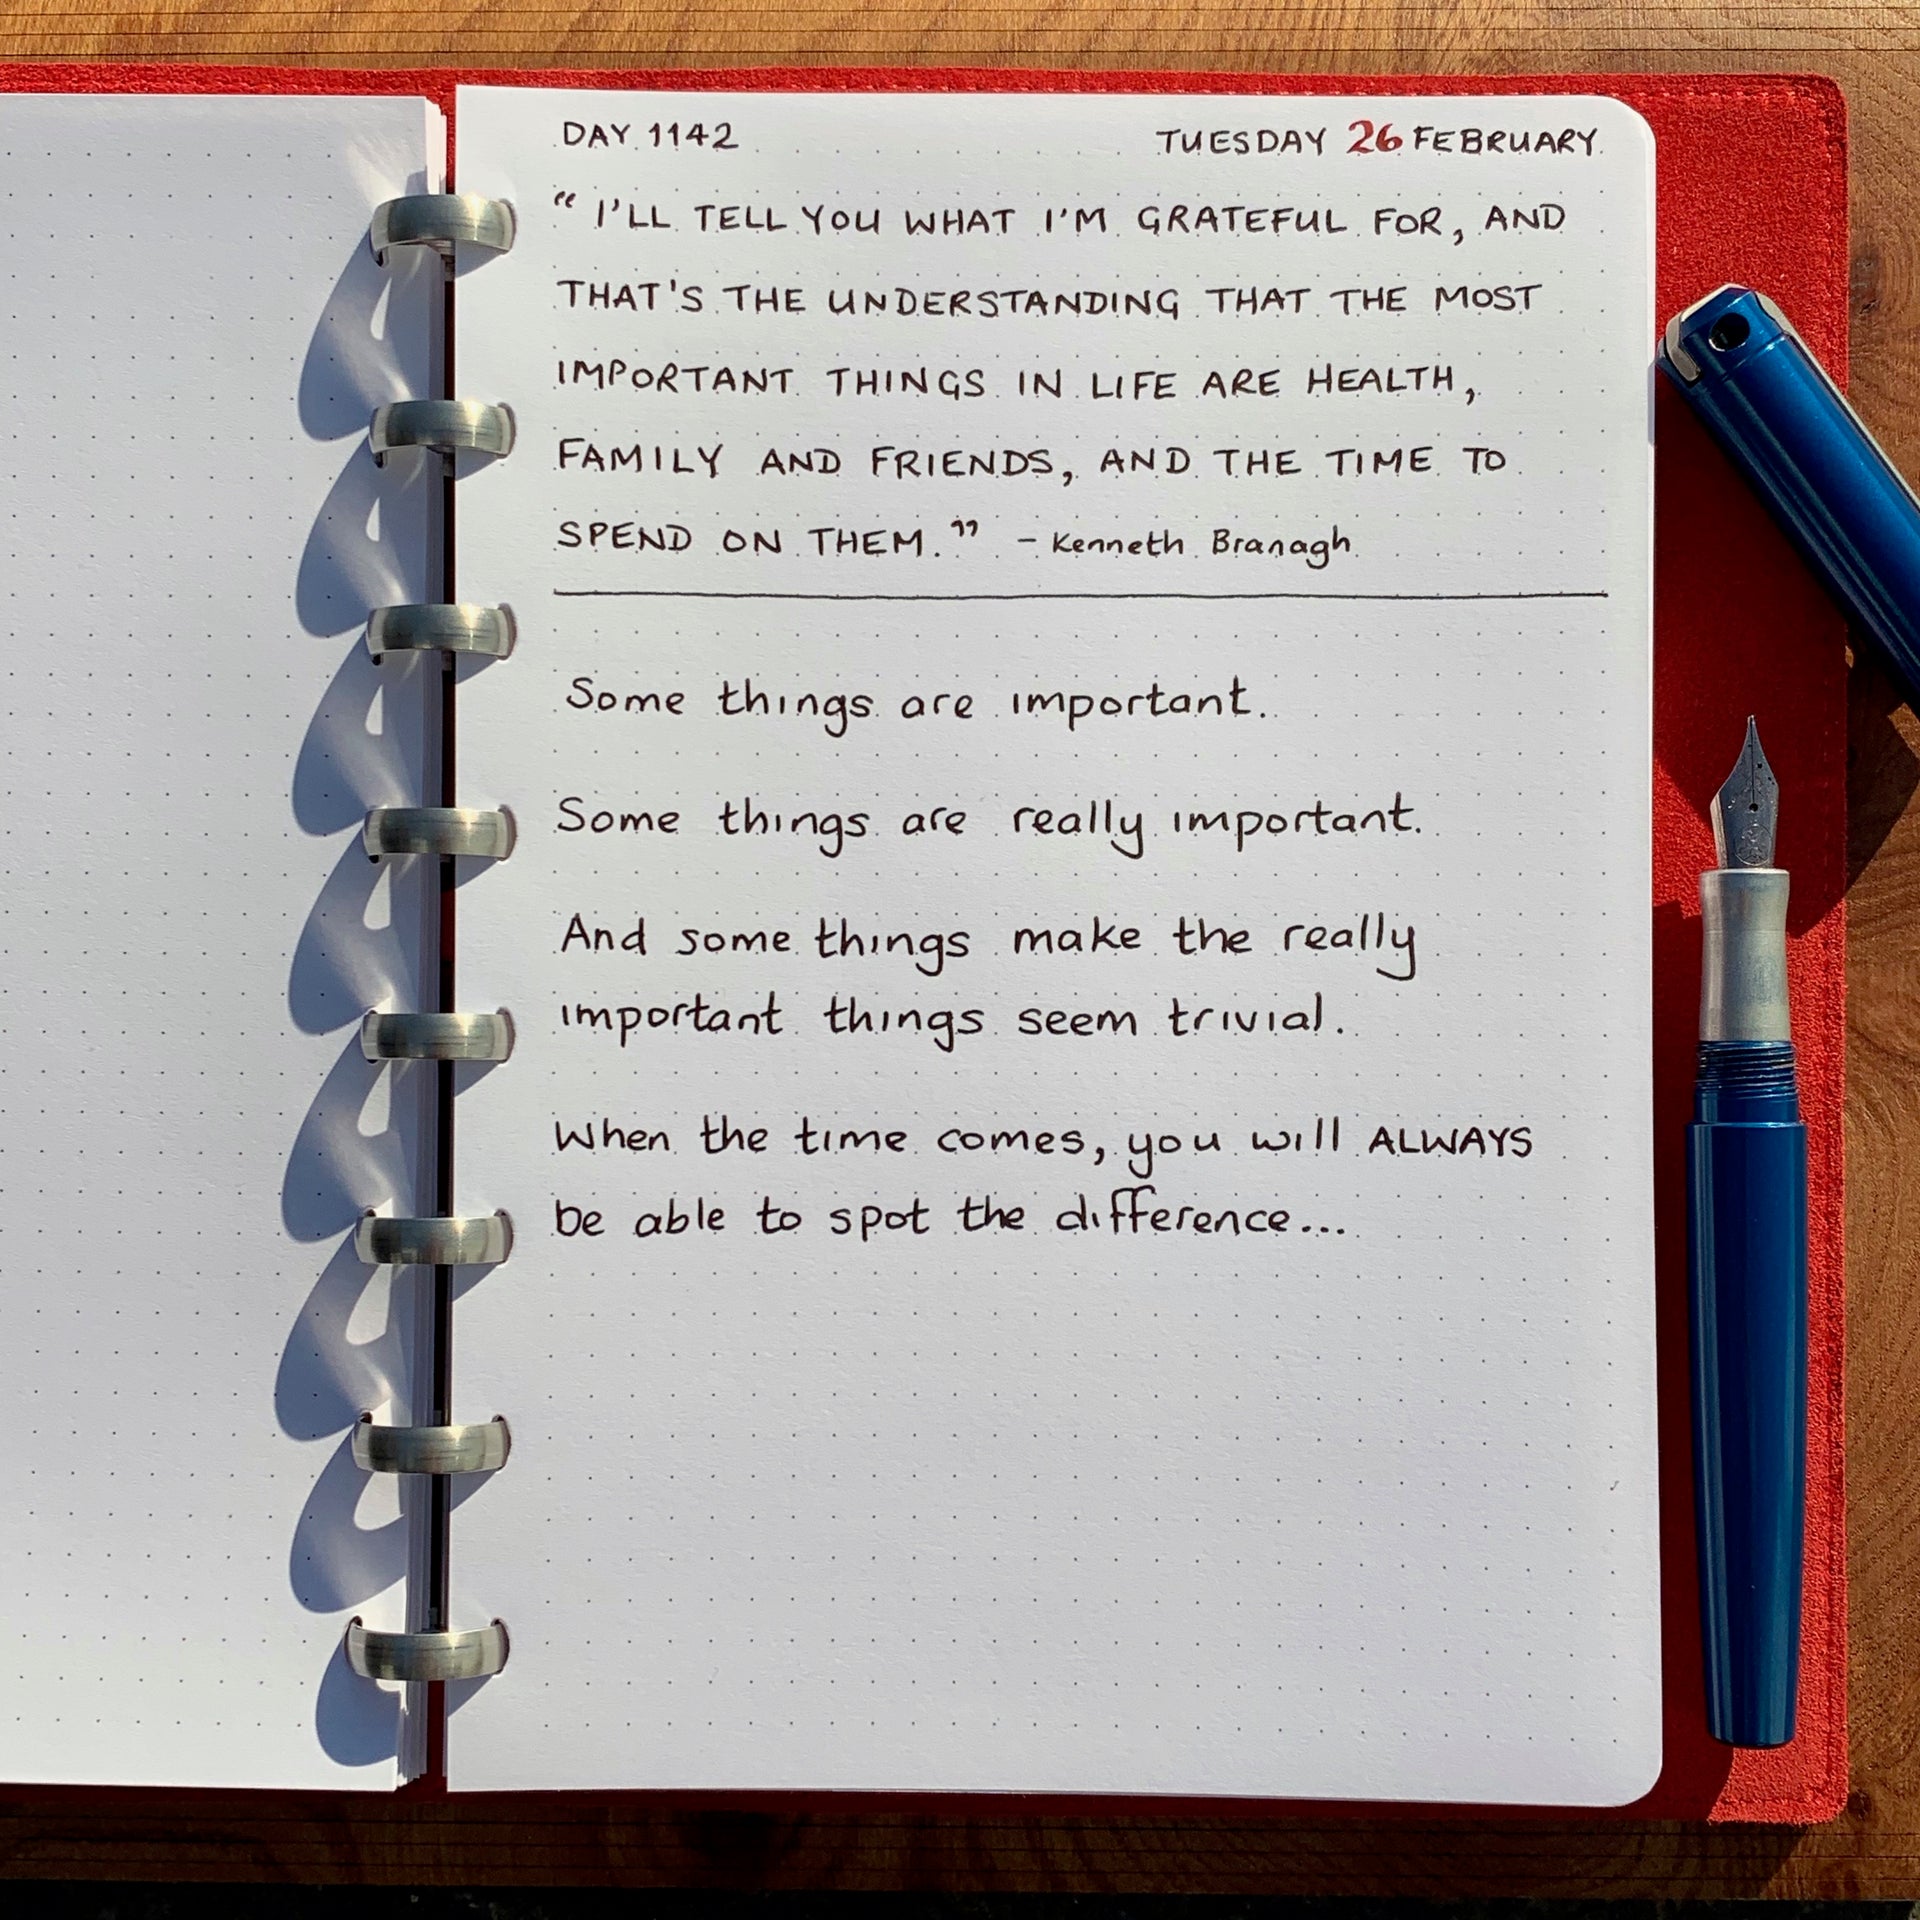 DAY 1142 TUESDAY 26 FEBRUARY
“I'LL TELL YOU WHAT I'M GRATEFUL FOR, AND
THAT'S THE UNDERSTANDING THAT THE MOST
IMPORTANT THINGS IN LIFE ARE HEALTH,
FAMILY AND FRIENDS, AND THE TIME TO
SPEND ON THEM.” - Kenneth Branagh
Some things are important.
Some things are really important.
And some things make the really
important things seem trivial.
When the time comes, you will ALWAYS
be able to spot the difference...